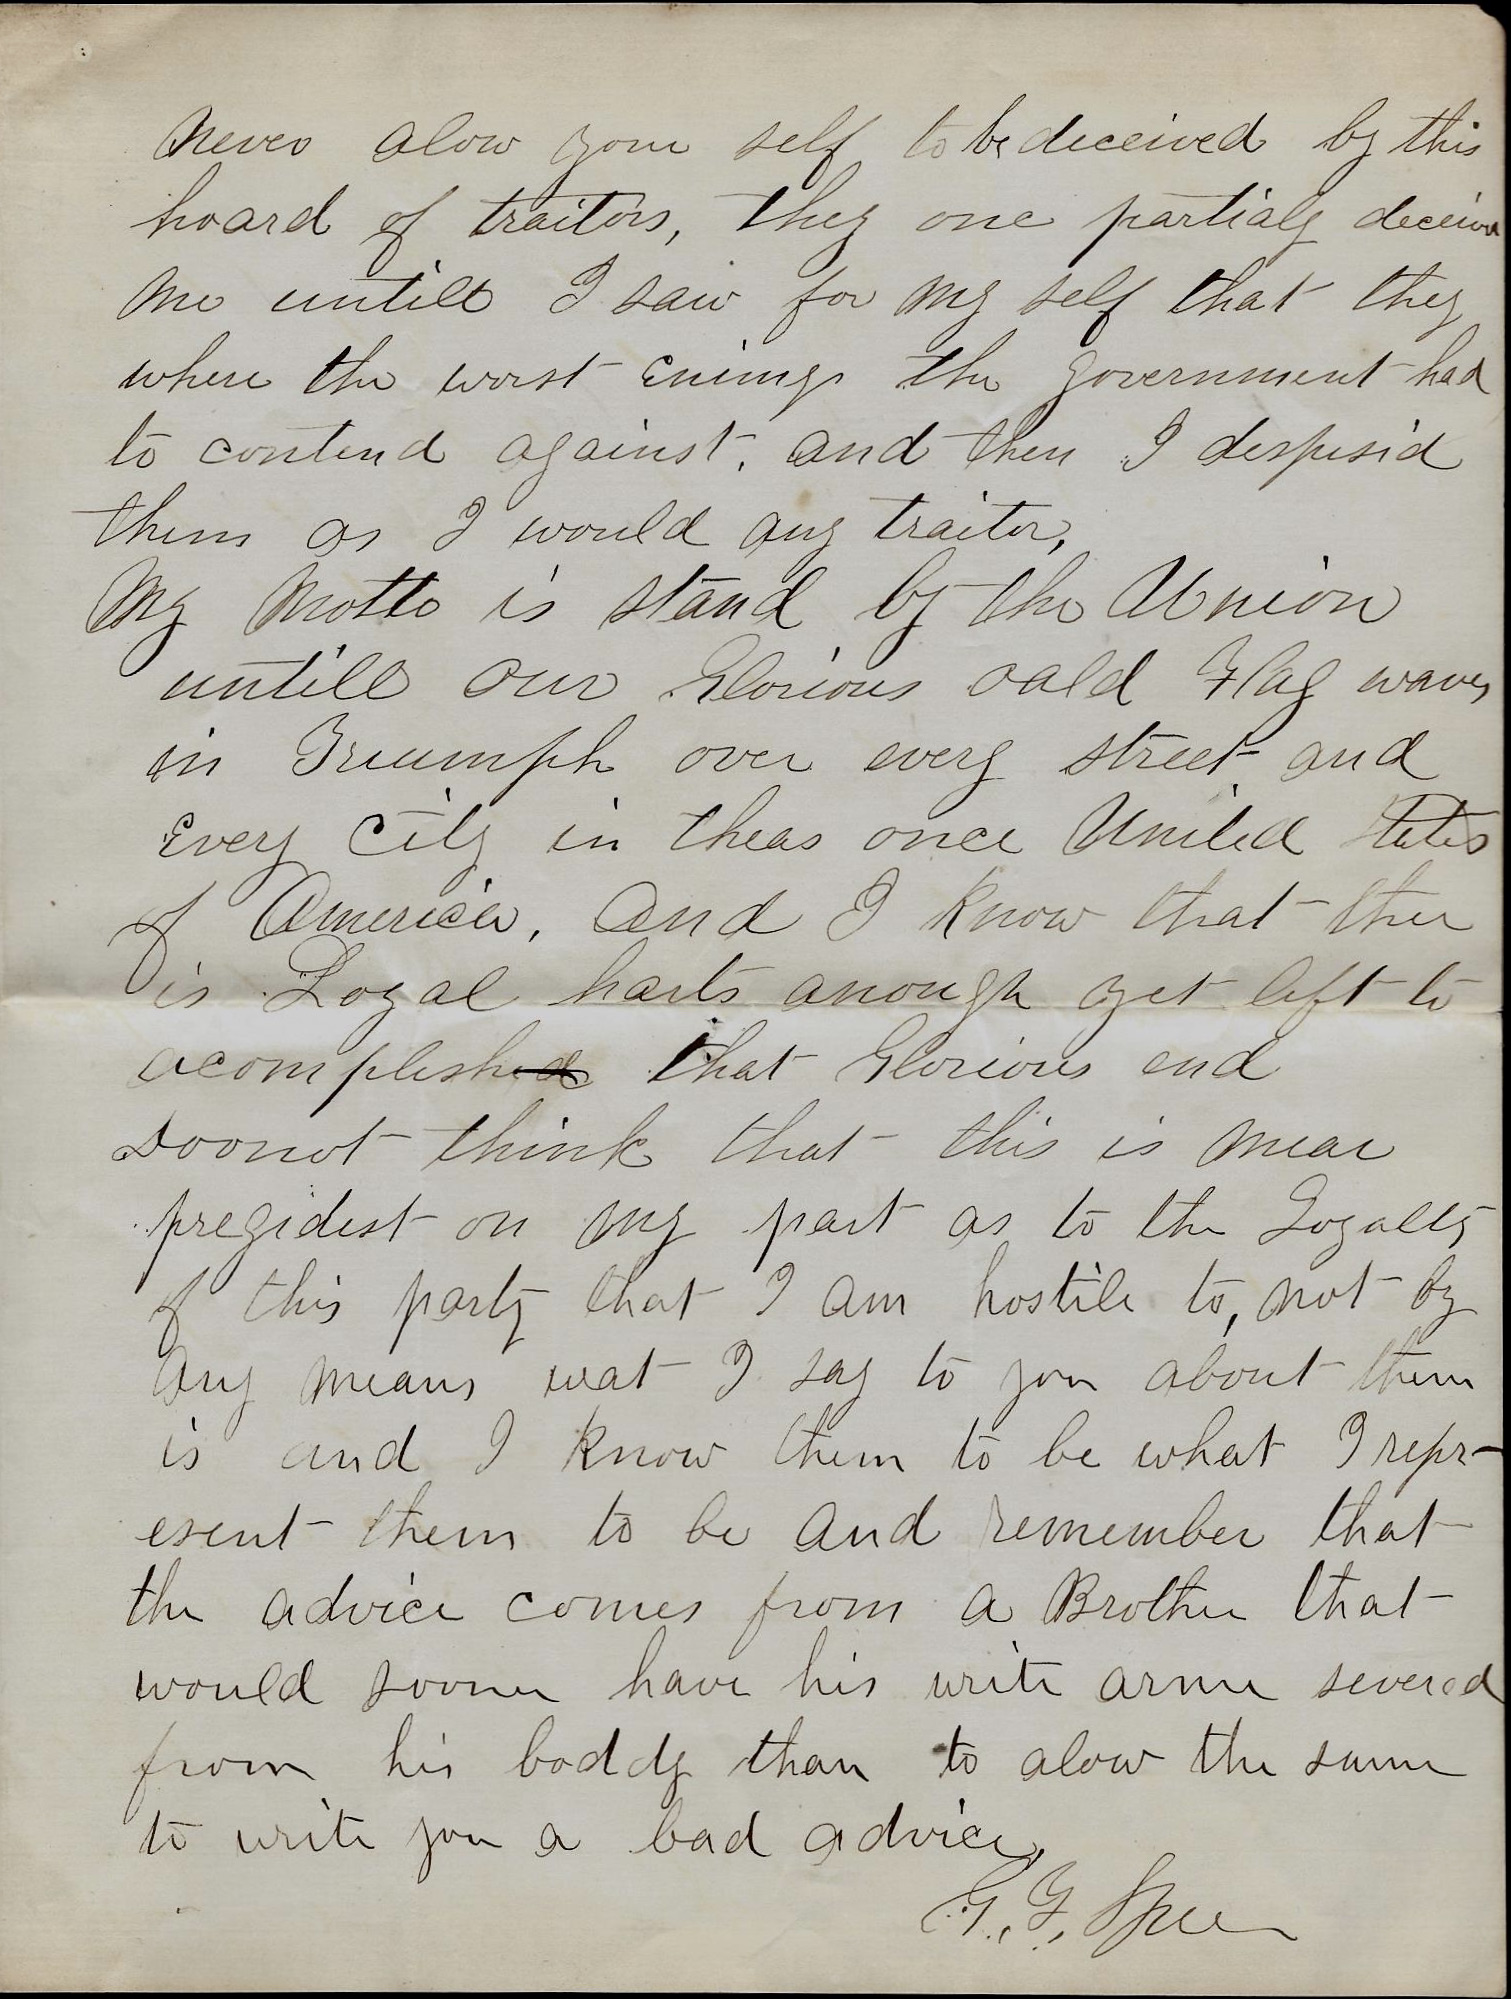 Never alow your self to be deceived by this
hoard of traitors, they one partialy deceived
me untill I saw for my self that they
where the worst Enimys the government had
to contend against. and then I despised
them as I would any traitor,
My Motto is stand by the Union
untill our Glorious oald Flag waves
in Triumph over every street and
Every City in theas once United States
of America, And I know that ther
is Loyal harts anough yet left to
acomplish that Glorious end
Doonot think that this is mear
pregidest on my part as to the Loyalty
of this party that I am hostile to, not by
any means wat I say to you about them
is and I know them to be what I repr-
esent them to be and remember that
the advice comes from a Brother that
would sooner have his write arme severed
from his boddy than to alow the same
to write you a bad advice,
G. F.